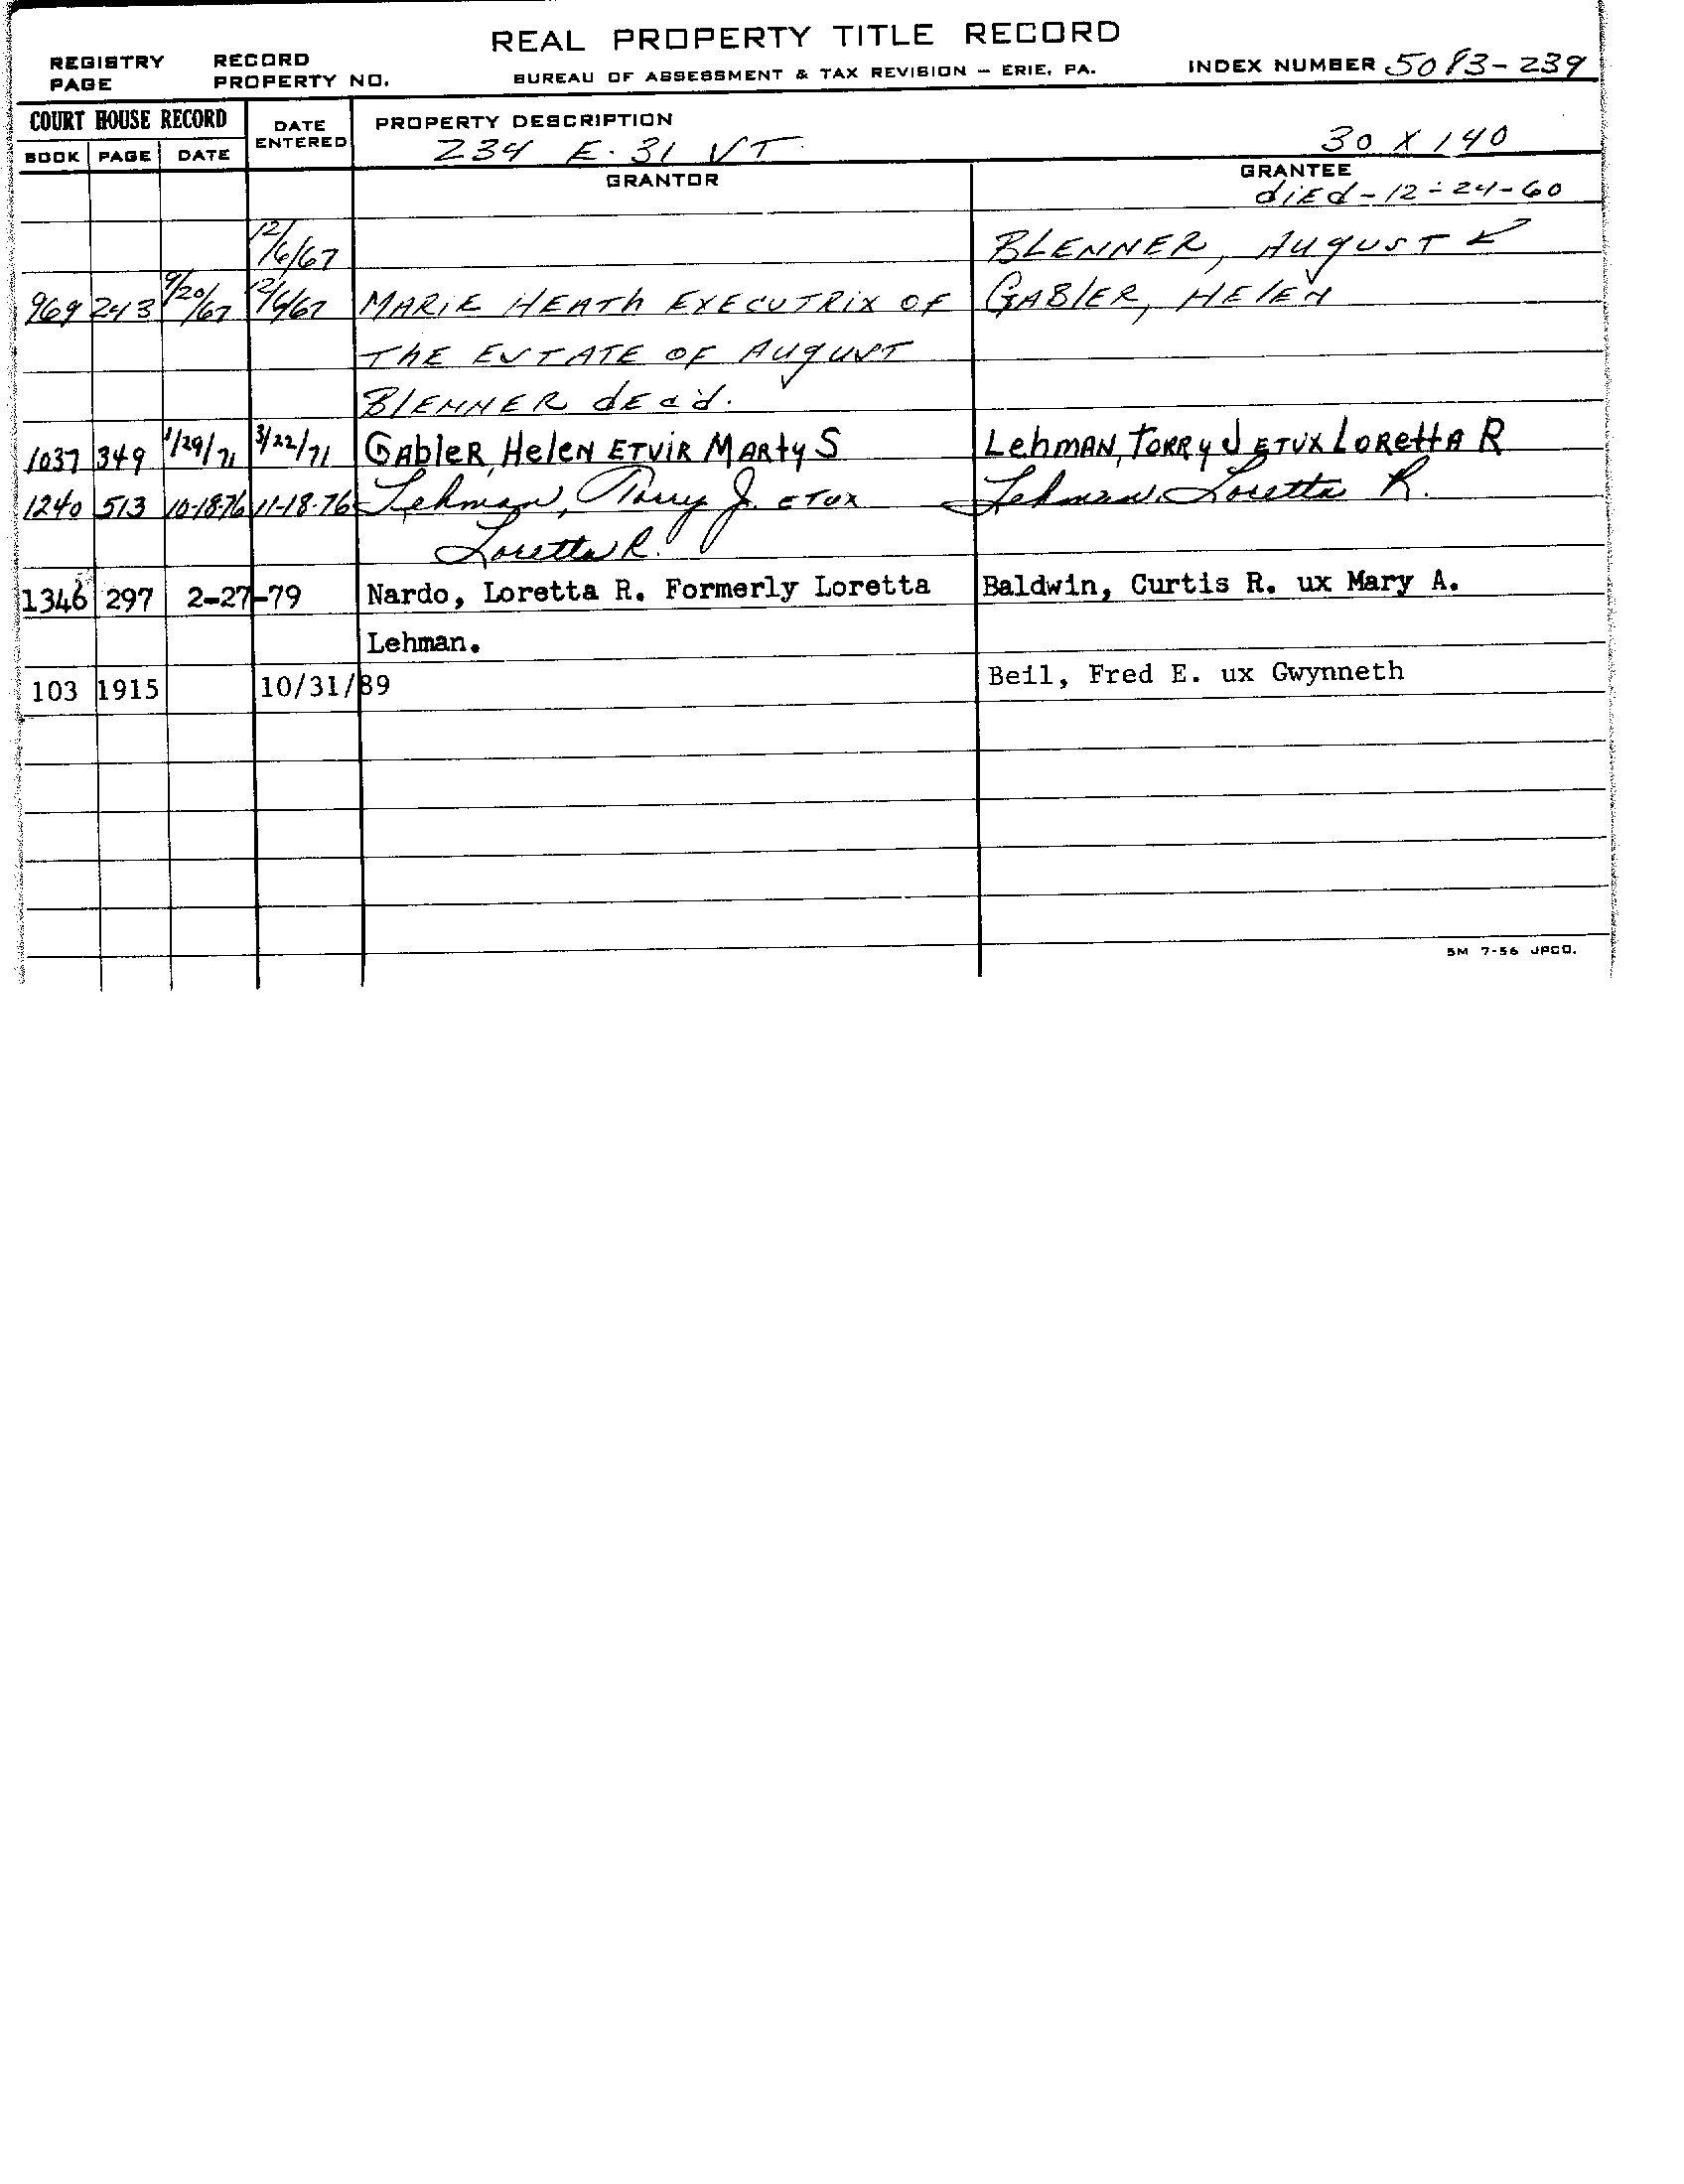 REAL PROPERTY TITLE RECORD
REGISTRY PAGE RECORD PROPERTY NO. BUREAU OF ASSESSMENT & TAX REVISION – ERIE, PA. INDEX NUMBER 5083-239
COURT HOUSE RECORD DATE ENTERED PROPERTY DESCRIPTION
BOOK PAGE DATE 234 E. 31 ST. 30 X 140
GRANTOR GRANTEE
died-12-24-60
12/6/67 BLENNER, AUGUST
969 243 9/20/67 12/6/67 MARIE HEATH EXECUTRIX OF GABLER, HELEN
THE ESTATE OF AUGUST
BLENNER dEc'd.
1037 349 1/29/71 3/22/71 GABLER, HELEN ETVIR MARTY S LEHMAN, TORRY J ETUX LORETTA R
1240 513 10-18-76 11-18-76 Lehman, Torry J. ETUX Lehman, Loretta R.
Loretta R.
1346 297 2-27-79 Nardo, Loretta R. Formerly Loretta Baldwin, Curtis R. ux Mary A.
Lehman.
103 1915 10/31/89 Beil, Fred E. ux Gwynneth
5M 7-56 JPCO.